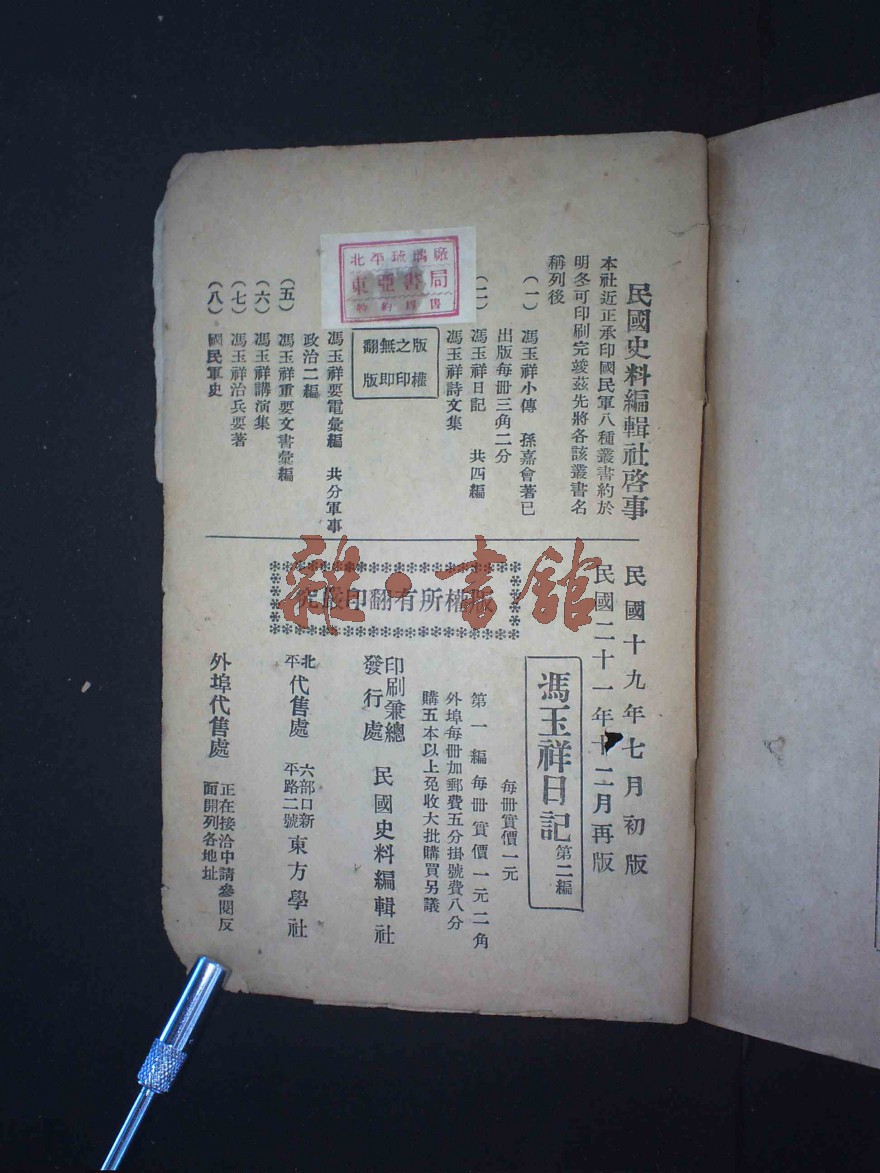 民國史料編輯社啓事
本社近正承印國民軍八種叢書約於
明冬可印刷完竣茲先將各該叢書名
稱列後
(一) 馮玉祥小傳 孫嘉會著已
出版每冊三角二分
(二) 馮玉祥日記 共四編
馮玉祥詩文集
版權
之印
無即
翻版
北平琉璃廠
東亞書局
特約經售
馮玉祥要電彙編 共分軍事
政治二編
(五) 馮玉祥重要文書彙編
(六) 馮玉祥講演集
(七) 馮玉祥治兵要著
(八) 國民軍史
民國十九年七月初版
民國二十一年十二月再版
版權所有翻印嚴究
雜·書館
馮玉祥日記 第二編
每冊實價一元
第一編每冊實價一元二角
外埠每冊加郵費五分掛號費八分
購五本以上免收大批購買另議
印刷兼總
發行處 民國史料編輯社
北平代售處 六部口新
平路二號 東方學社
外埠代售處 正在接洽中請參閱反
面開列各地址